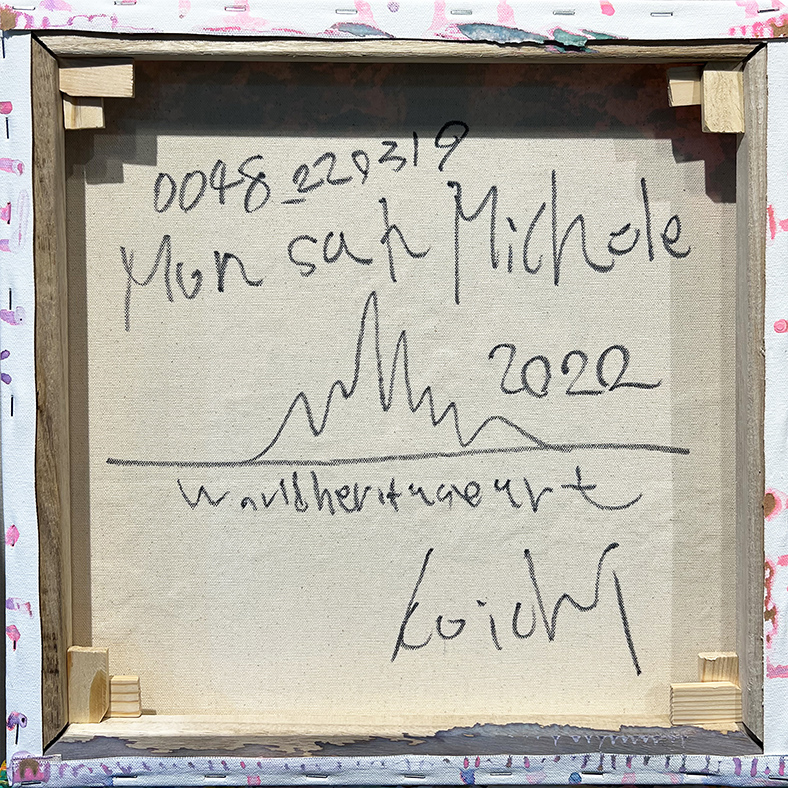 0048_220319
Mon sah Michele
2022
Worldheritageart
Koichi